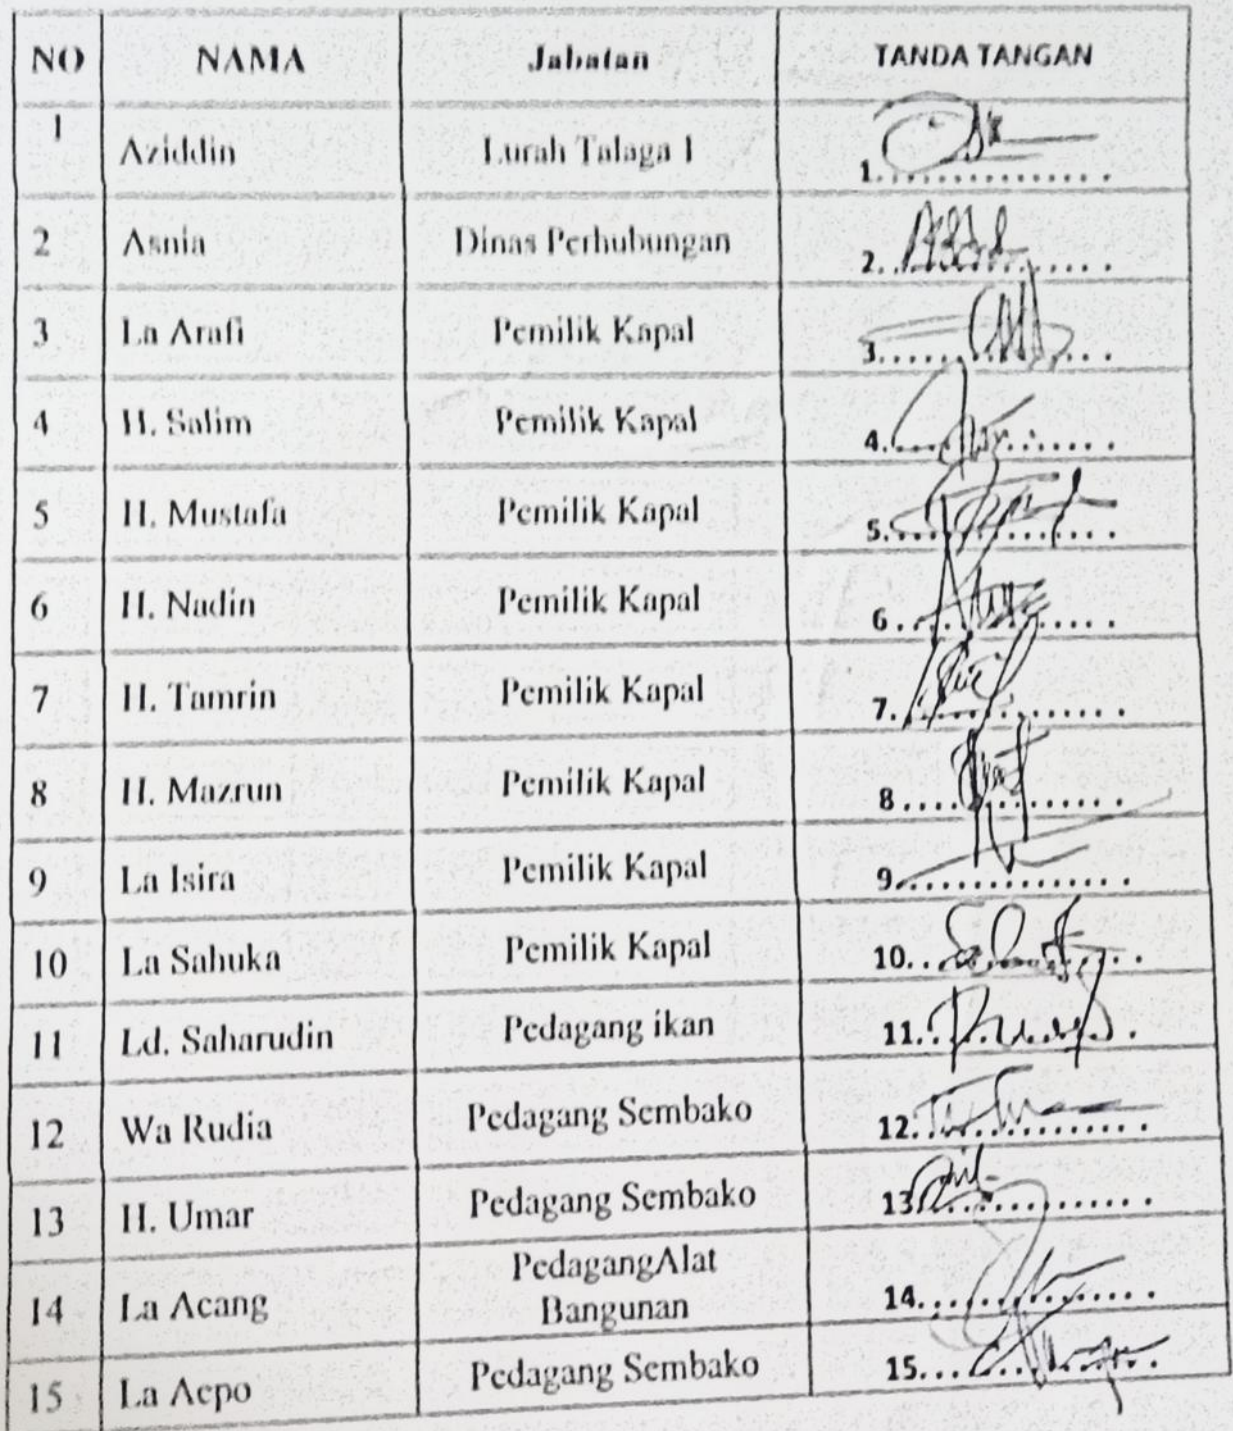 NO NAMA Jabatan TANDA TANGAN
1 Aziddin Lurah Talaga 1 1...............
2 Asnia Dinas Perhubungan 2...............
3 La Arafi Pemilik Kapal 3...............
4 H. Salim Pemilik Kapal 4...............
5 H. Mustafa Pemilik Kapal 5...............
6 H. Nadin Pemilik Kapal 6...............
7 H. Tamrin Pemilik Kapal 7...............
8 H. Mazrun Pemilik Kapal 8...............
9 La Isira Pemilik Kapal 9...............
10 La Sahuka Pemilik Kapal 10...............
11 Ld. Saharudin Pedagang ikan 11...............
12 Wa Rudia Pedagang Sembako 12...............
13 H. Umar Pedagang Sembako 13...............
14 La Acang PedagangAlat
Bangunan 14...............
15 La Aepo Pedagang Sembako 15...............